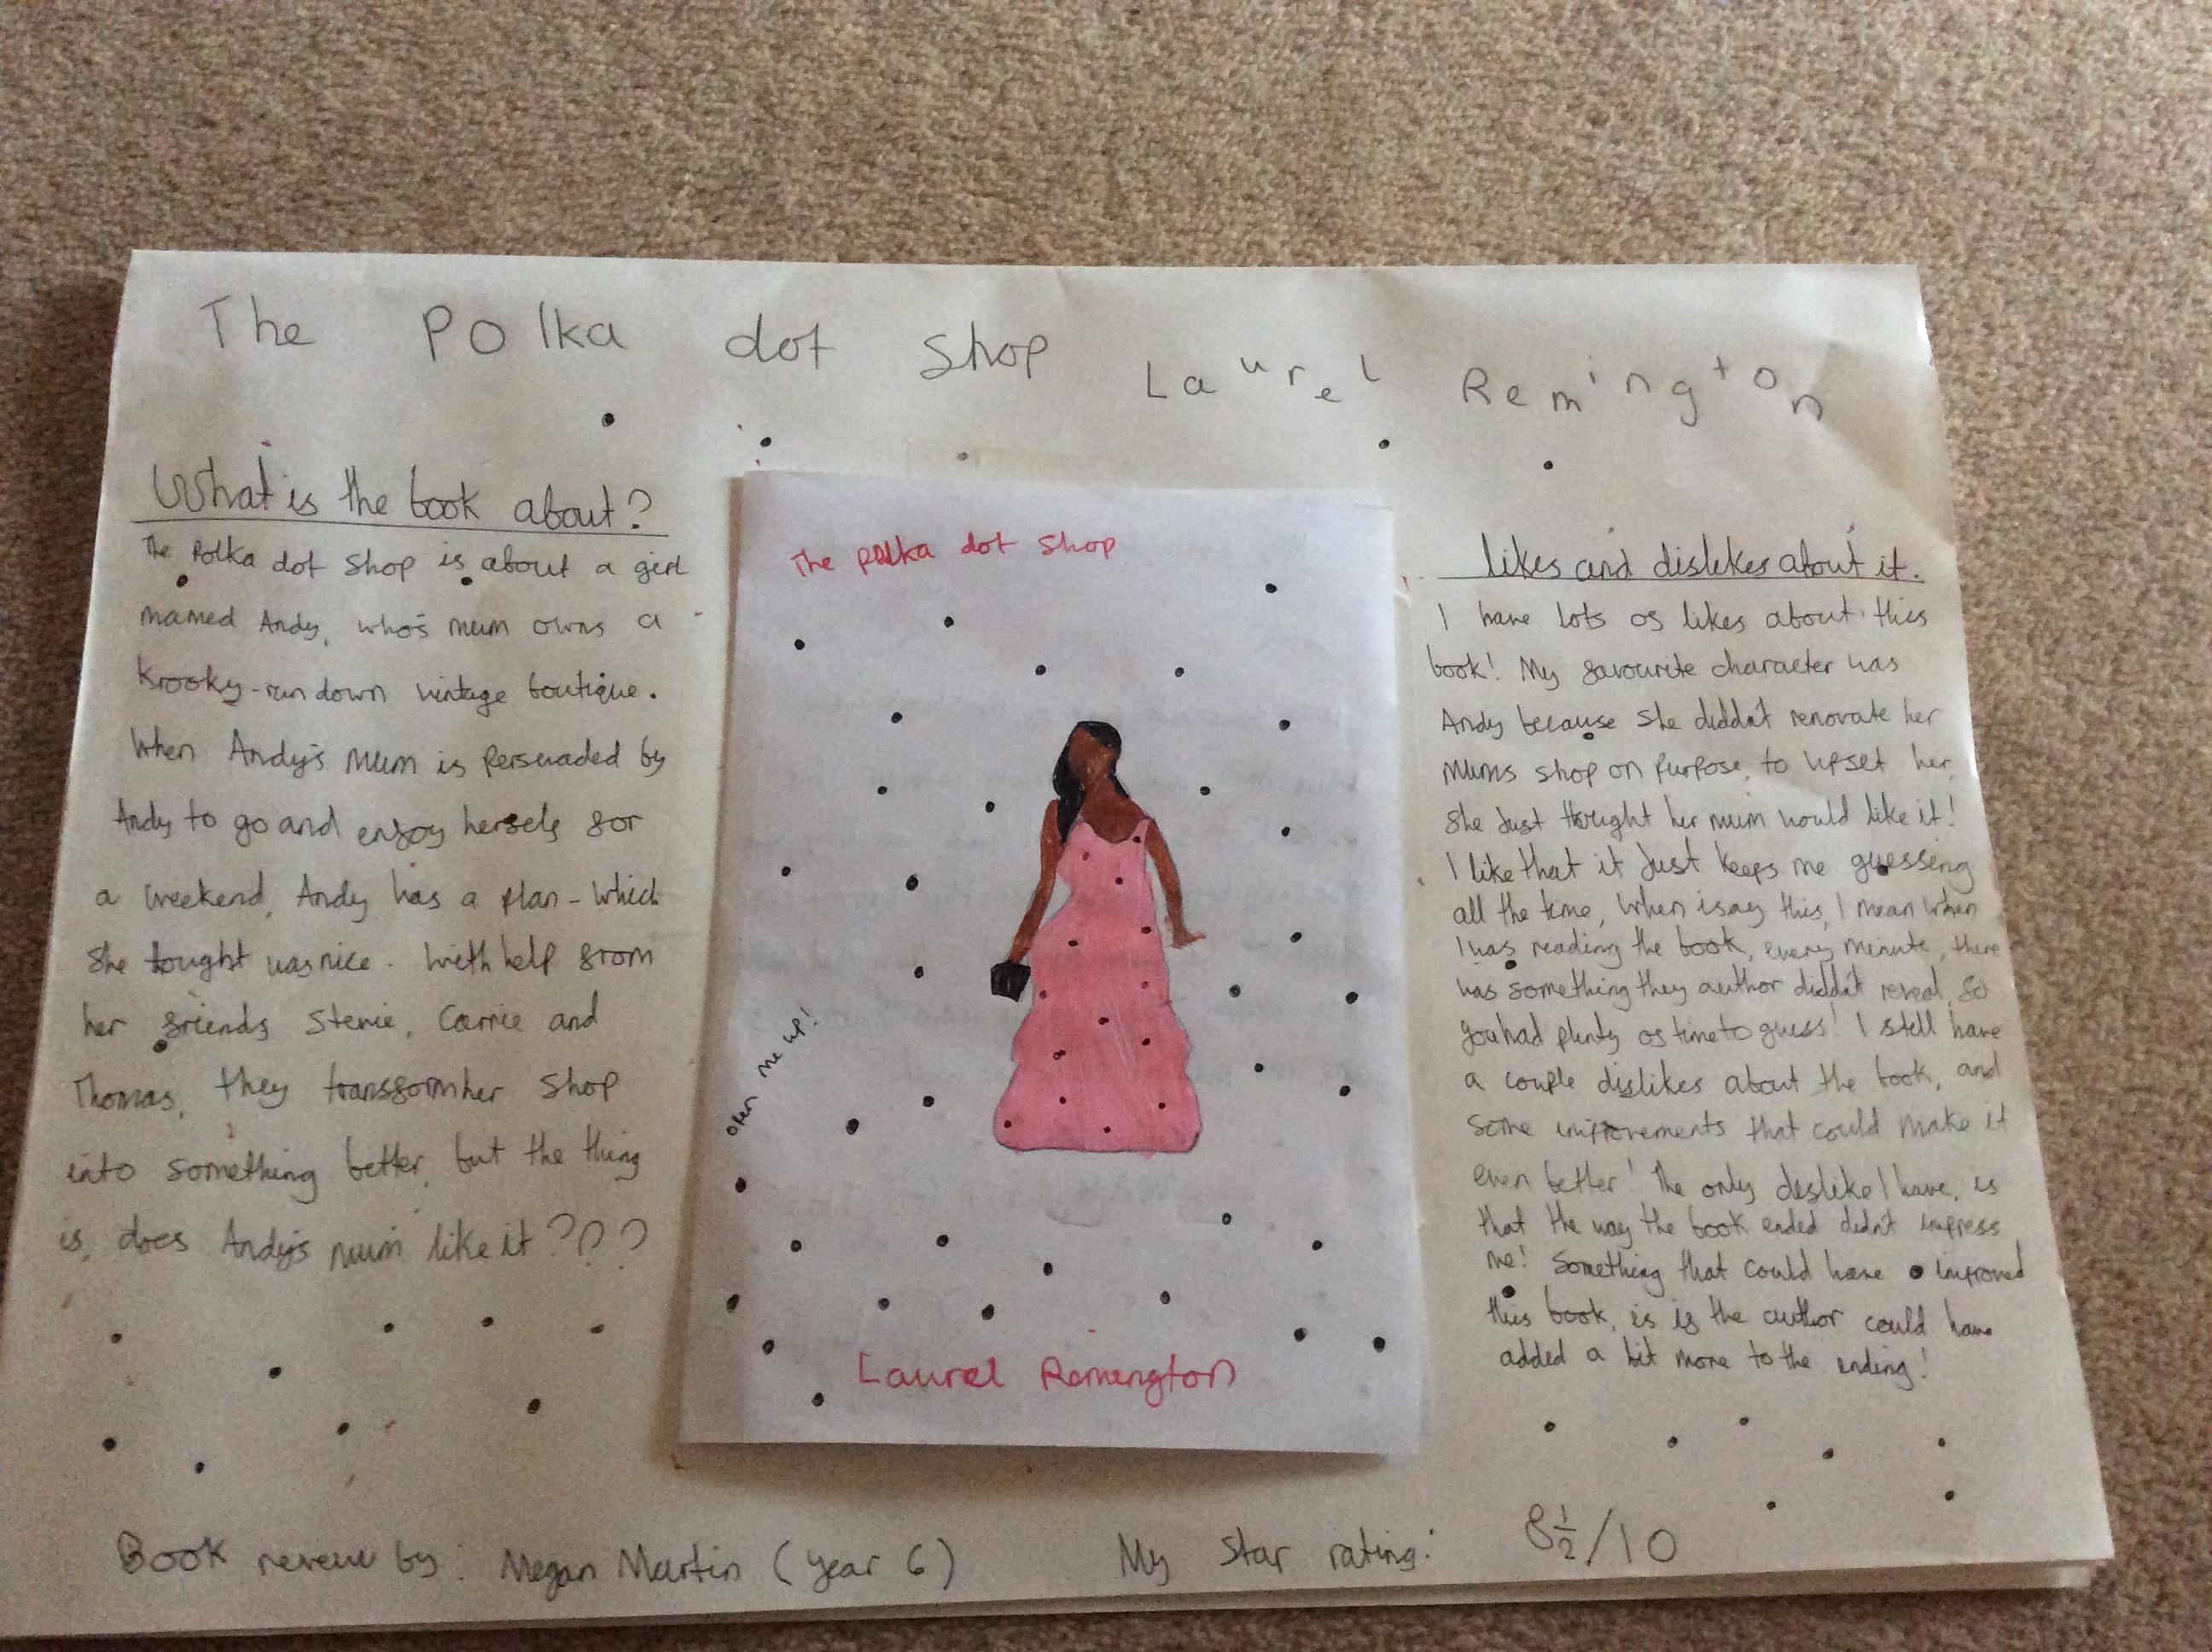 The Polka dot shop Laurel Remington
What is the book about?
The Polka dot shop is about a girl
named Andy, who's mum owns a
krooky-run down vintage boutique.
When Andy's mum is persuaded by
Andy to go and enjoy herself for
a weekend, Andy has a plan - which
she tought was nice. With help from
her friends Stevie, Carrie and
Thomas, they transform her shop
into something better, but the thing
is, does Andy's mum like it???
The polka dot shop
open me up!
Laurel Remington
likes and dislikes about it.
I have lots of likes about this
book! My favourite character was
Andy because she diddn't renovate her
mums shop on purpose, to upset her,
she Just thought her mum would like it!
I like that it Just keeps me guessing
all the time, When i say this, I mean when
I was reading the book, every minute, there
was something they author diddn't reveal, so
you had plenty of time to guess! I still have
a couple dislikes about the book, and
some improvements that could make it
even better! The only dislike I have, is
that the way the book ended didn't impress
me! Something that could have improved
this book, is if the author could have
added a bit more to the ending!
Book review by: Megan Martin (year 6)
My star rating: 8½/10